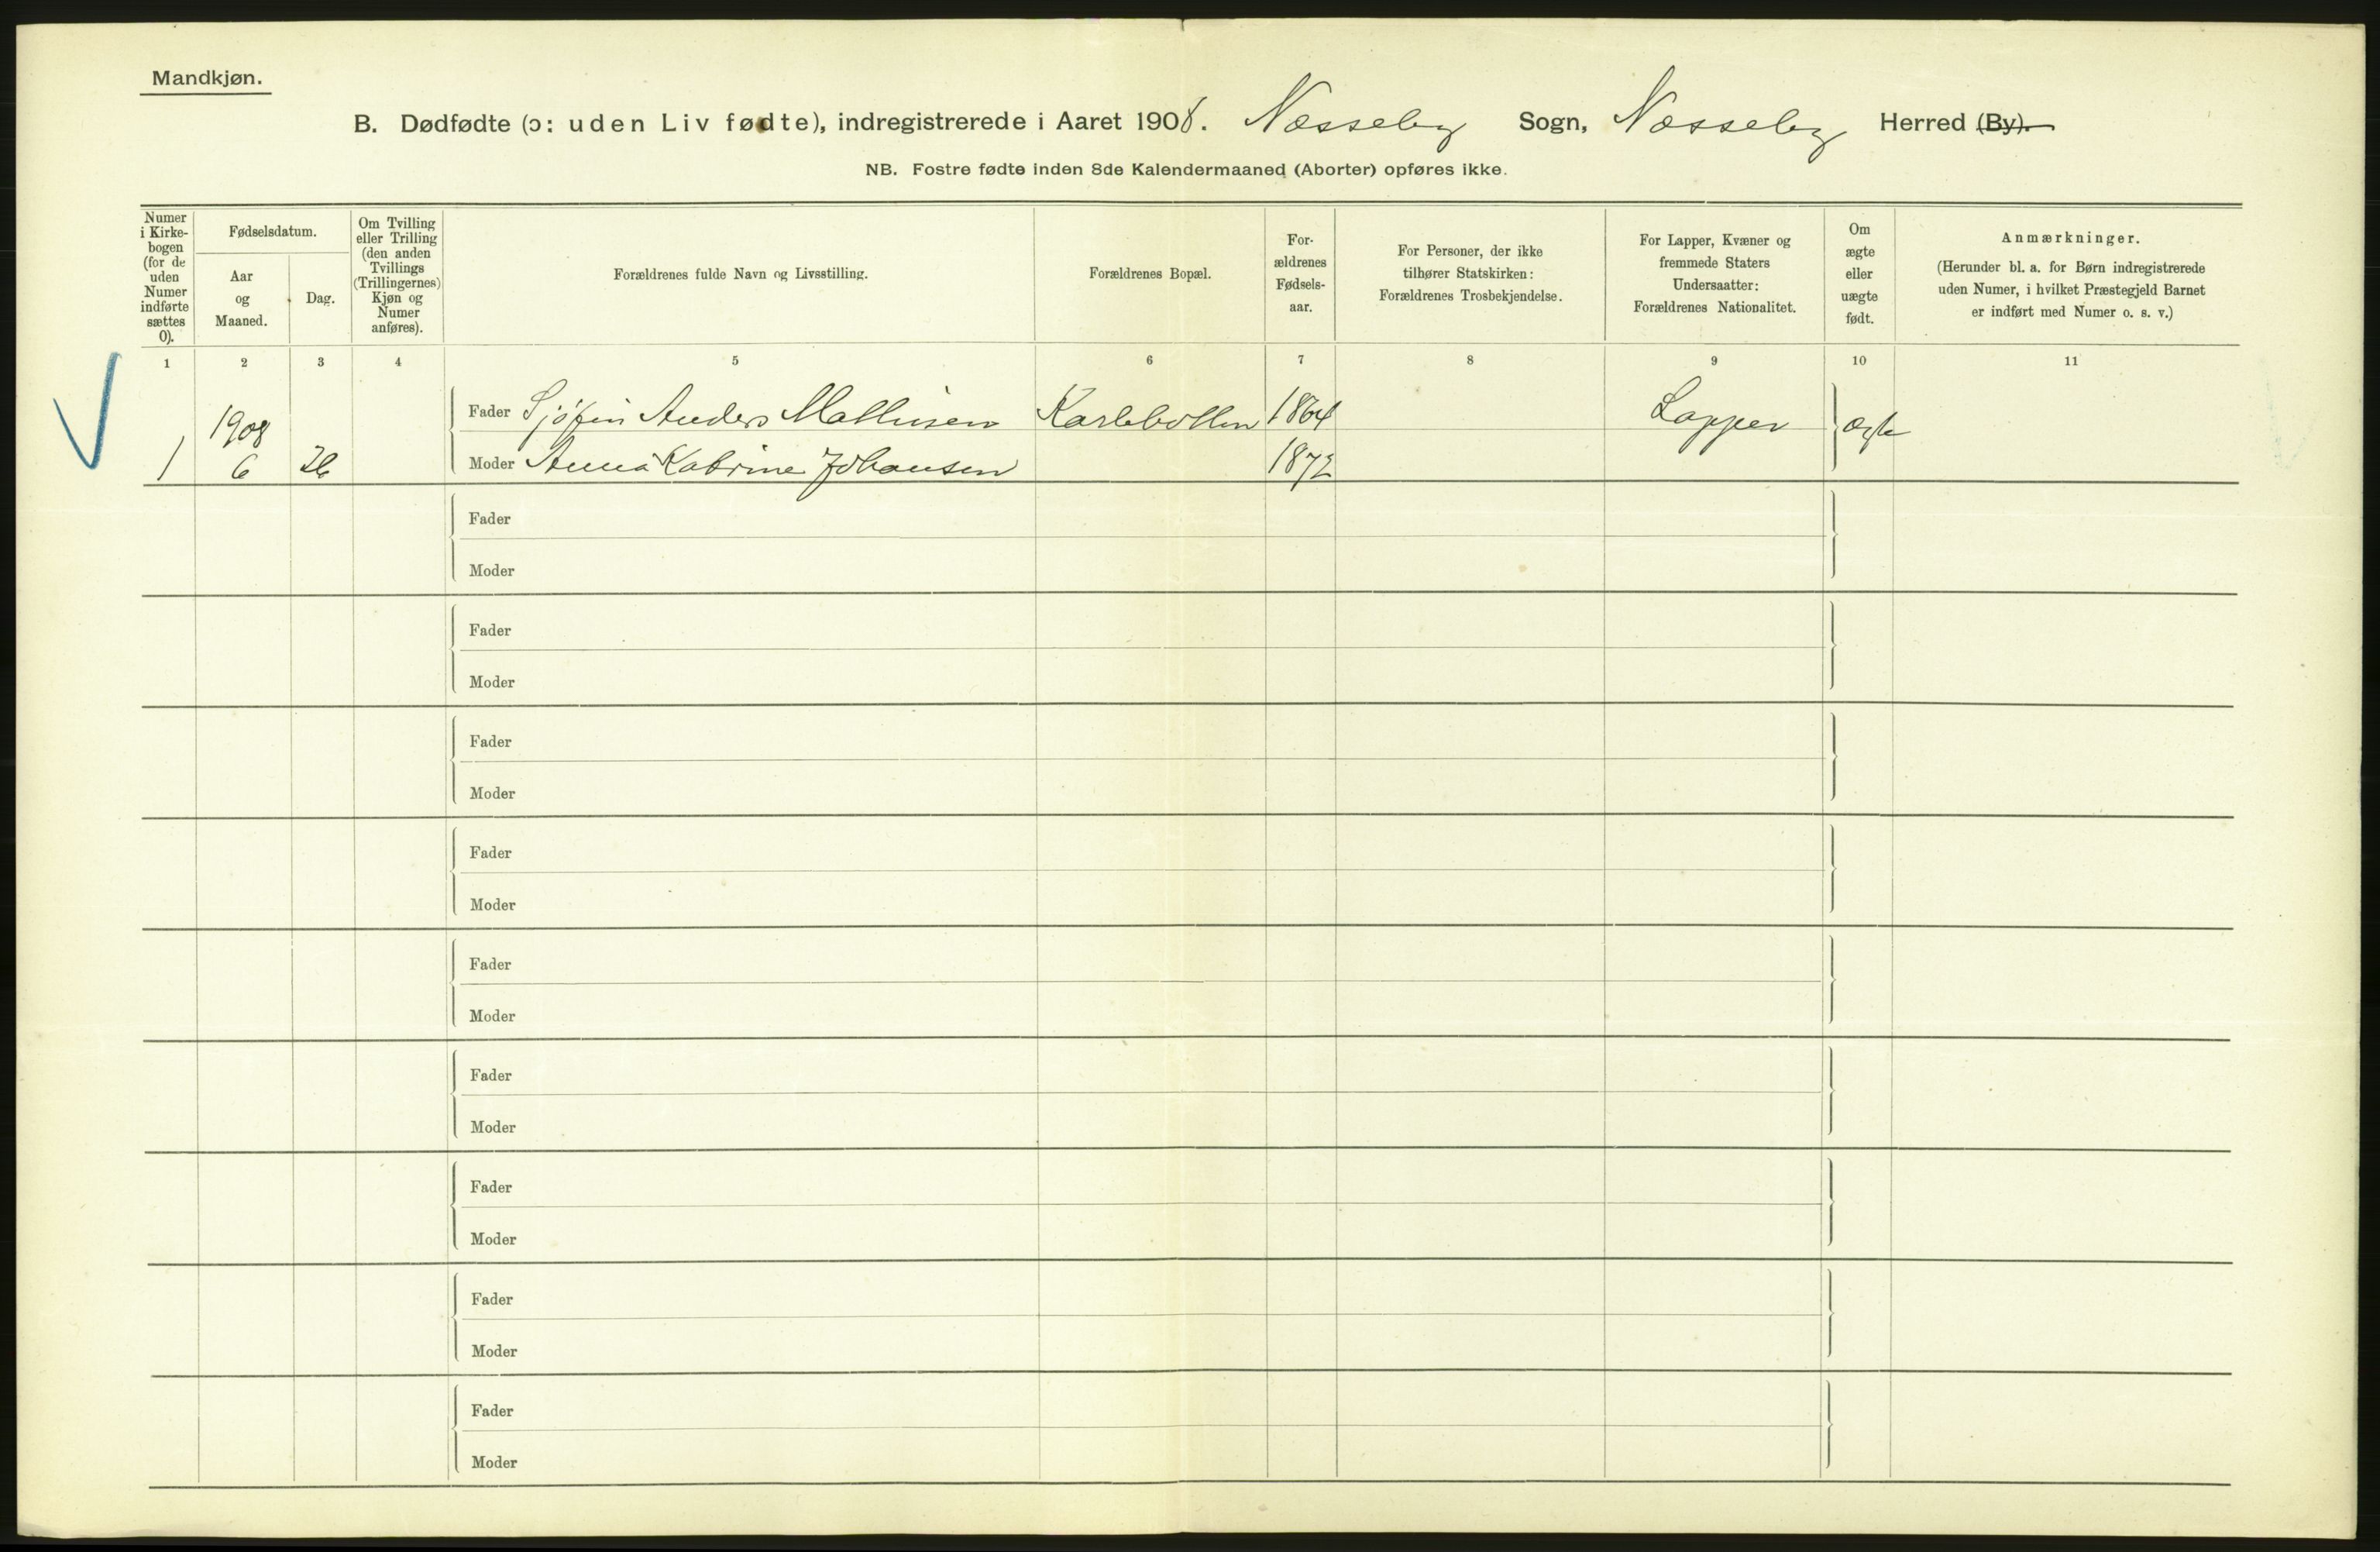 Mandkjøn.
B. Dødfødte (ɔ: uden Liv fødte), indregistrerede i Aaret 1908. Næsseby Sogn, Næsseby Herred (By).
NB. Fostre fødte inden 8de Kalendermaaned (Aborter) opføres ikke.
Numer
i Kirke-
bogen
(for de
uden
Numer
indførte
sættes
0).
Fødselsdatum.
Aar
og
Maaned.
Dag.
Om Tvilling
eller Trilling
(den anden
Tvillings
(Trillingernes)
Kjøn og
Numer
anføres).
Forældrenes fulde Navn og Livsstilling.
Forældrenes Bopæl.
For-
ældrenes
Fødsels-
aar.
For Personer, der ikke
tilhører Statskirken:
Forældrenes Trosbekjendelse.
For Lapper, Kvæner og
fremmede Staters
Undersaatter:
Forældrenes Nationalitet.
Om
ægte
eller
uægte
født.
Anmærkninger.
(Herunder bl. a. for Børn indregistrerede
uden Numer, i hvilket Præstegjeld Barnet
er indført med Numer o. s. v.)
1 2 3 4 5 6 7 8 9 10 11
1908
Fader Sjøfin Anders Mathisen Karlebotten 1864 Lapper ægte
1 6 26 Moder Anna Katrine Johansen 1872
Fader
Moder
Fader
Moder
Fader
Moder
Fader
Moder
Fader
Moder
Fader
Moder
Fader
Moder
Fader
Moder
Fader
Moder